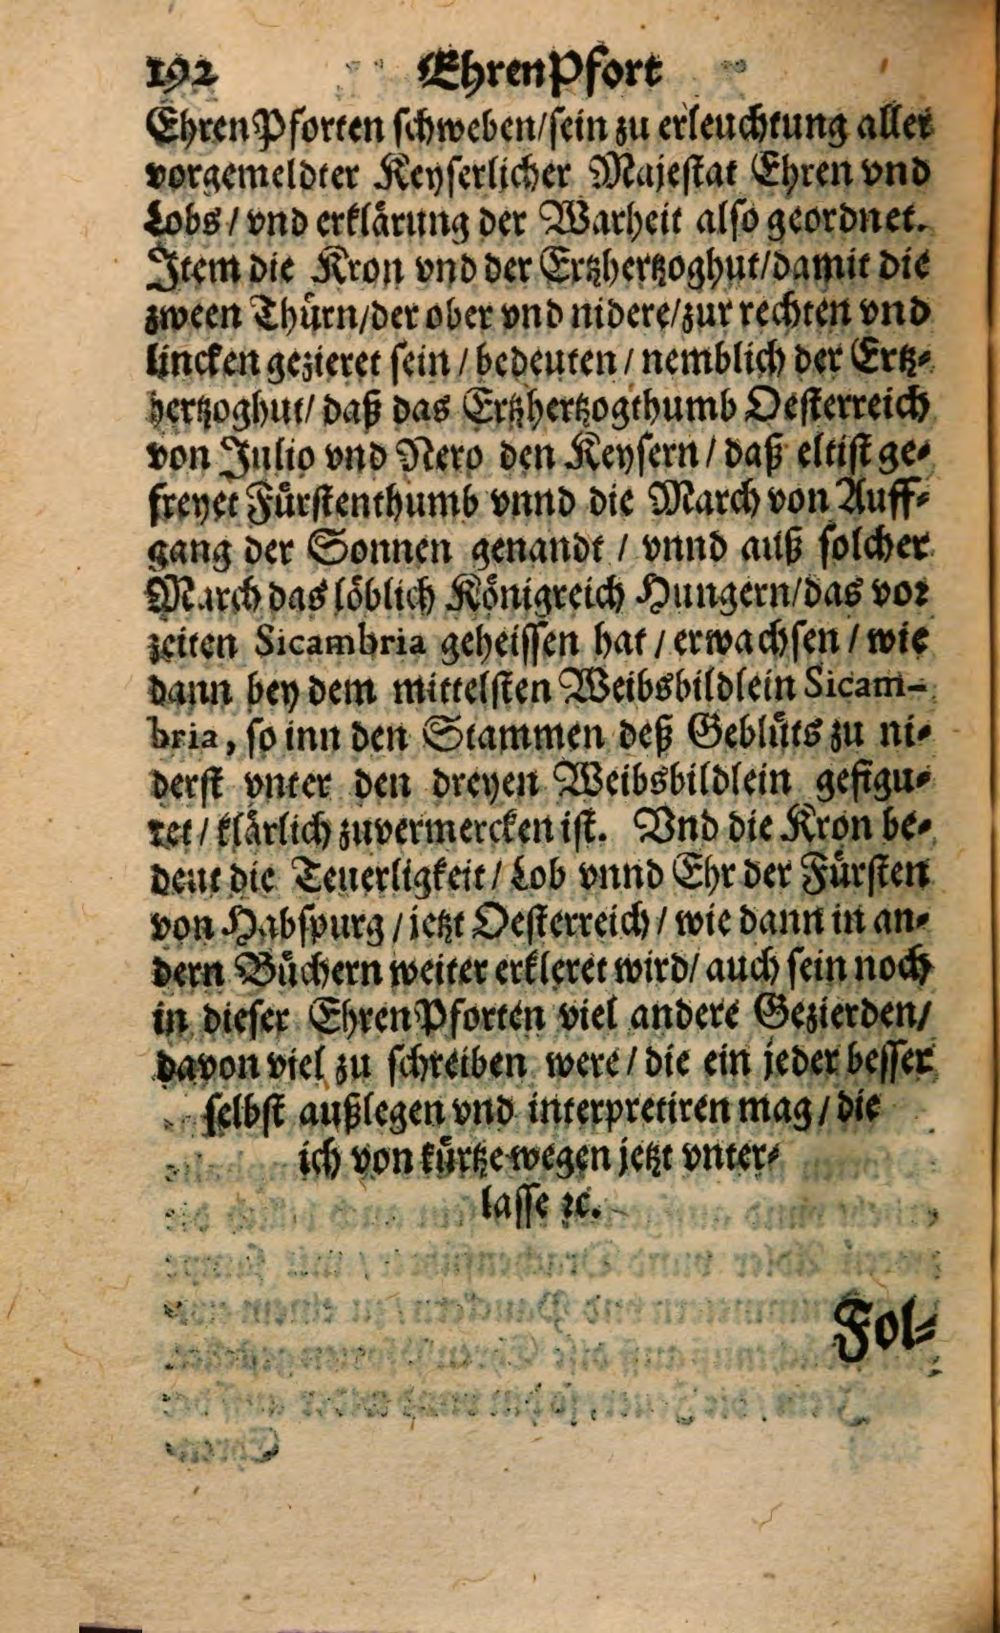 192 EhrenPfort
EhrenPforten schweben/sein zu erleuchtung aller
vorgemeldter Keyserlicher Majestat Ehren vnd
Lobs / vnd erklärung der Warheit also geordnet.
Item die Kron vnd der Ertzhertzoghut/damit die
zween Thürn/der ober vnd nidere/zur rechten vnd
lincken gezieret sein / bedeuten / nemblich der Ertz-
hertzoghut/ daß das Ertzhertzogthumb Oesterreich
von Julio vnd Nero den Keysern / daß eltist ge-
freyet Fürstenthumb vnnd die March von Auff-
gang der Sonnen genandt / vnnd auß solcher
March das löblich Königreich Hungern/das vor
zeiten Sicambria geheissen hat / erwachsen / wie
dann bey dem mittelsten Weibsbildlein Sicam-
bria, so inn den Stammen deß Geblüts zu ni-
derst vnter den dreyen Weibsbildlein gefigu-
ret / klärlich zuvermercken ist. Vnd die Kron be-
deut die Teuerligkeit / Lob vnnd Ehr der Fürsten
von Habspurg / jetzt Oesterreich / wie dann in an-
dern Büchern weiter erkleret wird/ auch sein noch
in dieser EhrenPforten viel andere Gezierden/
davon viel zu schreiben were / die ein jeder besser
selbst außlegen vnd interpretiren mag / die
ich von kürtze wegen jetzt vnter-
lasse ꝛc.
Fol-